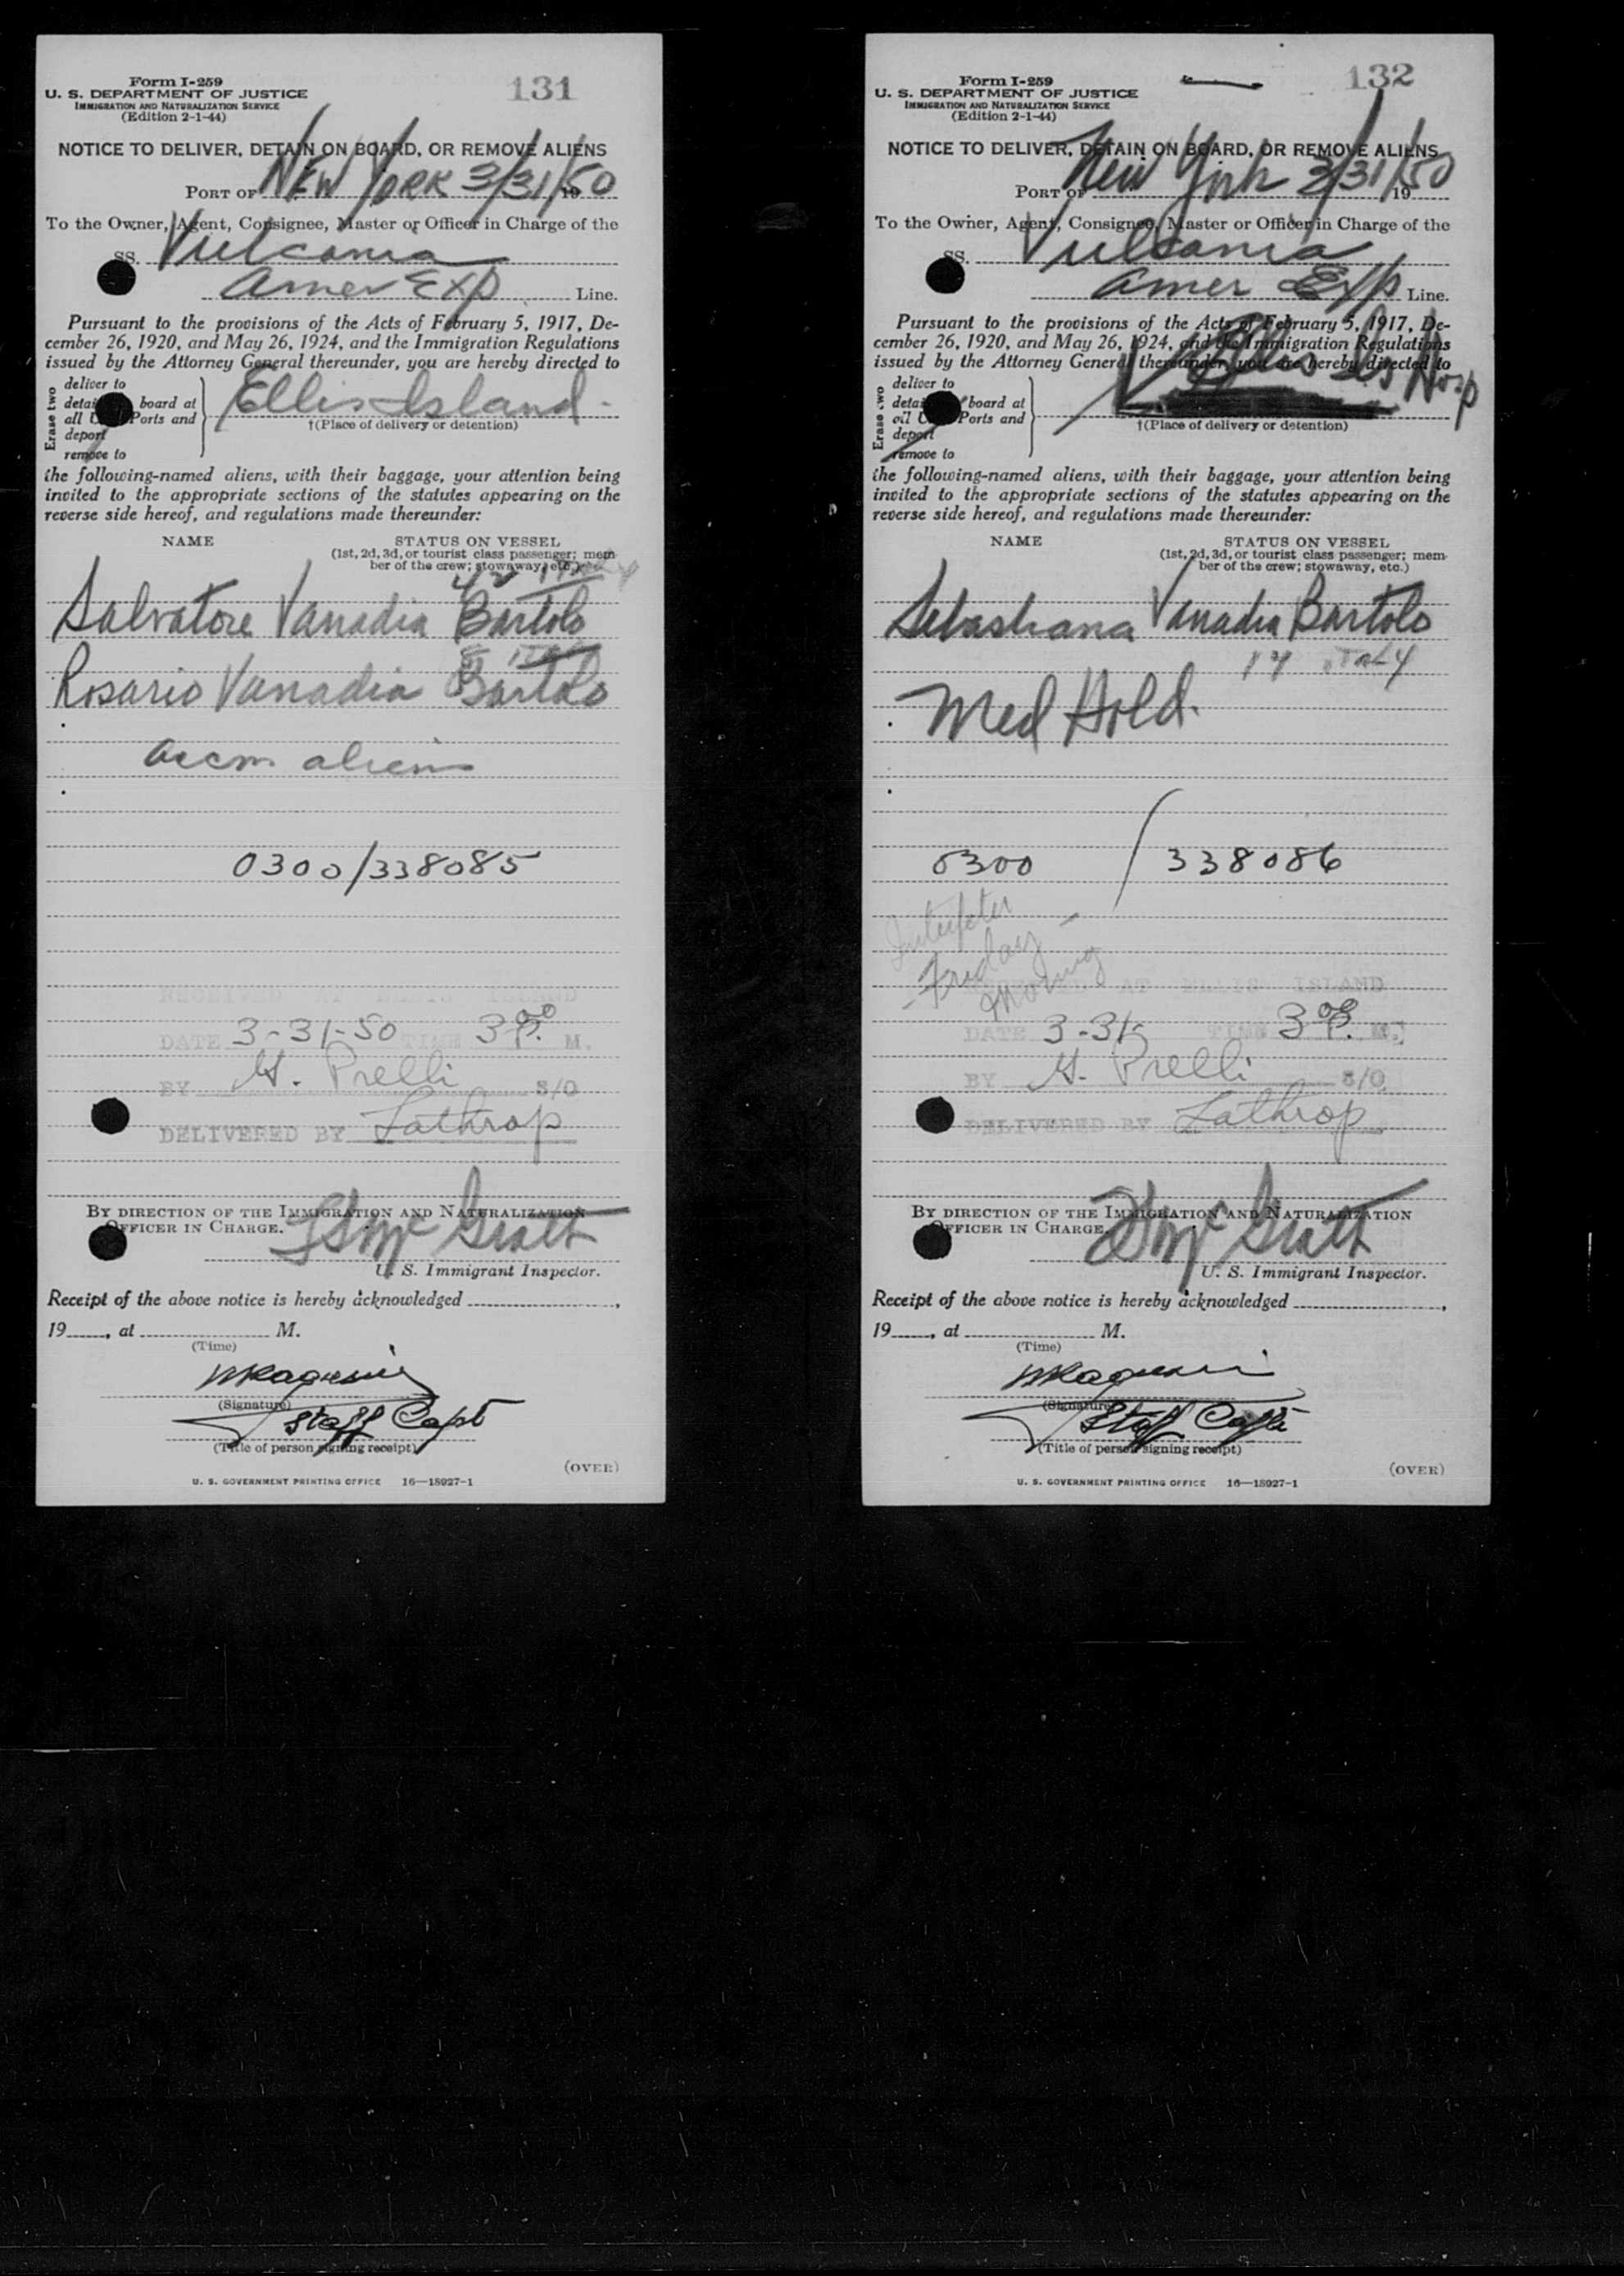 Form I-259
U. S. DEPARTMENT OF JUSTICE
IMMIGRATION AND NATURALIZATION SERVICE
(Edition 2-1-44)
131
NOTICE TO DELIVER, DETAIN ON BOARD, OR REMOVE ALIENS
PORT OF NEW YORK 3/31/50 19
To the Owner, Agent, Consignee, Master or Officer in Charge of the
SS. Vulcania
Amer Exp Line.
Pursuant to the provisions of the Acts of February 5, 1917, De-
cember 26, 1920, and May 26, 1924, and the Immigration Regulations
issued by the Attorney General thereunder, you are hereby directed to
Erase two
deliver to
board at
all Ports and
deport
remove to
Ellis Island
†(Place of delivery or detention)
the following-named aliens, with their baggage, your attention being
invited to the appropriate sections of the statutes appearing on the
reverse side hereof, and regulations made thereunder:
NAME STATUS ON VESSEL
(1st, 2d, 3d, or tourist class passenger; mem-
ber of the crew; stowaway, etc.)
42 Italy
Salvatore Vanadia Bartolo
8 Italy
Rosario Vanadia Bartolo
accm aliens
0300/338085
RECEIVED AT ELLIS ISLAND
DATE 3-31-50 TIME 3 00 P. M.
BY Prelli S/O
DELIVERED BY Lathrop
BY DIRECTION OF THE IMMIGRATION AND NATURALIZATION
OFFICER IN CHARGE.
U. S. Immigrant Inspector.
Receipt of the above notice is hereby acknowledged
19 , at M.
(Time)
(Signature)
Staff Capt
(Title of person signing receipt)
(OVER)
U. S. GOVERNMENT PRINTING OFFICE 16—18927-1
Form I-259
U. S. DEPARTMENT OF JUSTICE
IMMIGRATION AND NATURALIZATION SERVICE
(Edition 2-1-44)
132
NOTICE TO DELIVER, DETAIN ON BOARD, OR REMOVE ALIENS
PORT OF New York 3/31/50 19
To the Owner, Agent, Consignee, Master or Officer in Charge of the
SS. Vulcania
Amer Exp Line.
Pursuant to the provisions of the Acts of February 5, 1917, De-
cember 26, 1920, and May 26, 1924, and the Immigration Regulations
issued by the Attorney General thereunder, you are hereby directed to
Erase two
deliver to
board at
all Ports and
deport
remove to
Ellis Is Hosp
†(Place of delivery or detention)
the following-named aliens, with their baggage, your attention being
invited to the appropriate sections of the statutes appearing on the
reverse side hereof, and regulations made thereunder:
NAME STATUS ON VESSEL
(1st, 2d, 3d, or tourist class passenger; mem-
ber of the crew; stowaway, etc.)
Sebastiana Vanadia Bartolo
17 Italy
Med Hold.
0300 / 338086
Friday
AT ELLIS ISLAND
DATE 3-31- TIME 3 00 P. M.
BY Prelli S/O
DELIVERED BY Lathrop
BY DIRECTION OF THE IMMIGRATION AND NATURALIZATION
OFFICER IN CHARGE
U. S. Immigrant Inspector.
Receipt of the above notice is hereby acknowledged
19 , at M.
(Time)
(Signature)
Staff Capt
(Title of person signing receipt)
(OVER)
U. S. GOVERNMENT PRINTING OFFICE 16—18927-1